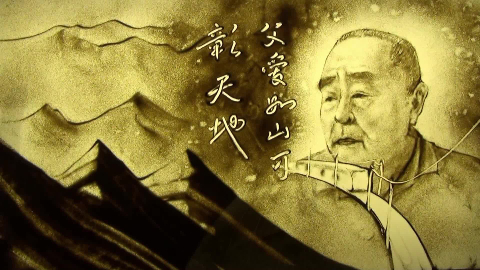 父爱如山可
彰天地